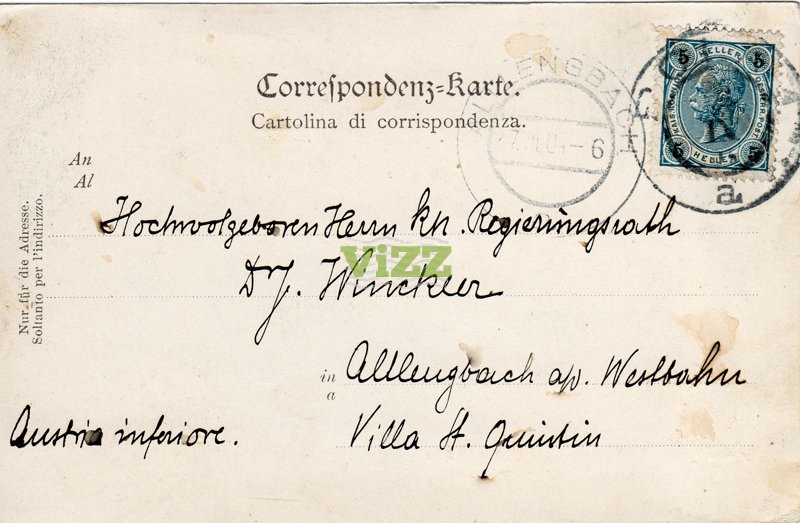 Correspondenz=Karte.
Cartolina di corrispondenza.
An
Al
Nur für die Adresse.
Soltanto per l'indirizzo.
Hochwolgeboren Herrn kk. Regierungsrath
Dr J. Winckler
in Altlengbach a/d. Westbahn
a Villa St. Quintin
Austria inferiore.
ViZZ
LENGBACH
6
5 HELLER 5
OESTERR. POST
5 HELLER 5
a